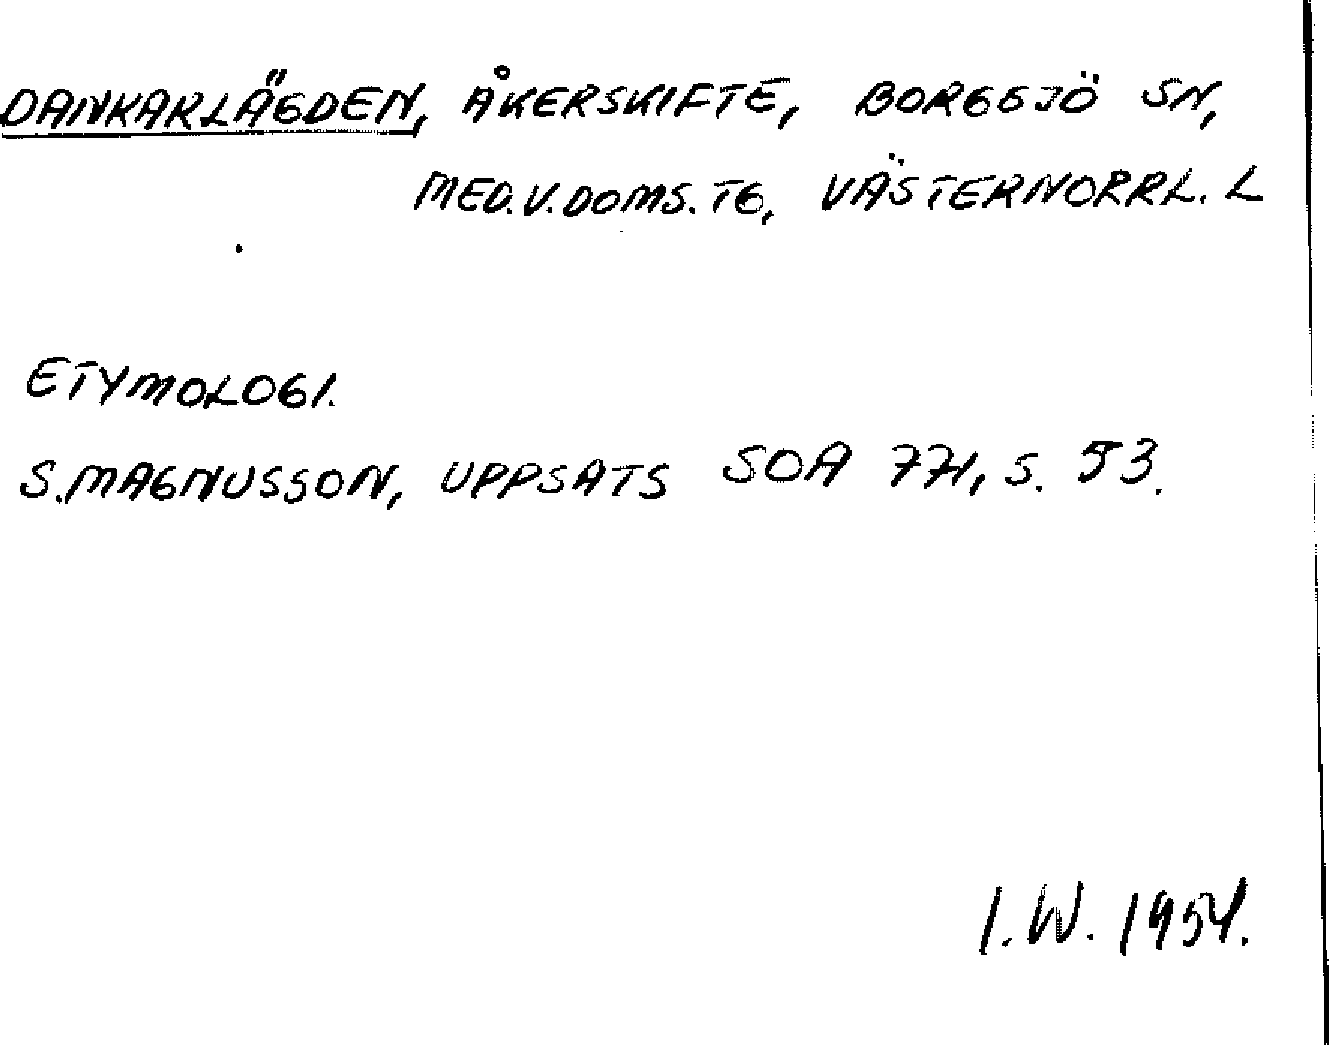 DANKARLÄGDEN, ÅKERSKIFTE, BORGSJÖ SN,
MED.V.DOMS.TG, VÄSTERNORRL. L
ETYMOLOGI.
S.MAGNUSSON, UPPSATS SOA 771, S. 53.
I.W. 1954.